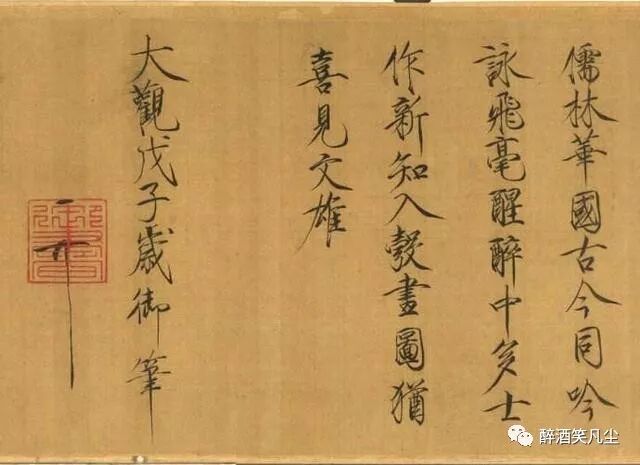 儒林華國古今同吟
詠飛毫醒醉中多士
作新知入彀畫圖猶
喜見文雄
大觀戊子歲御筆
醉酒笑凡尘